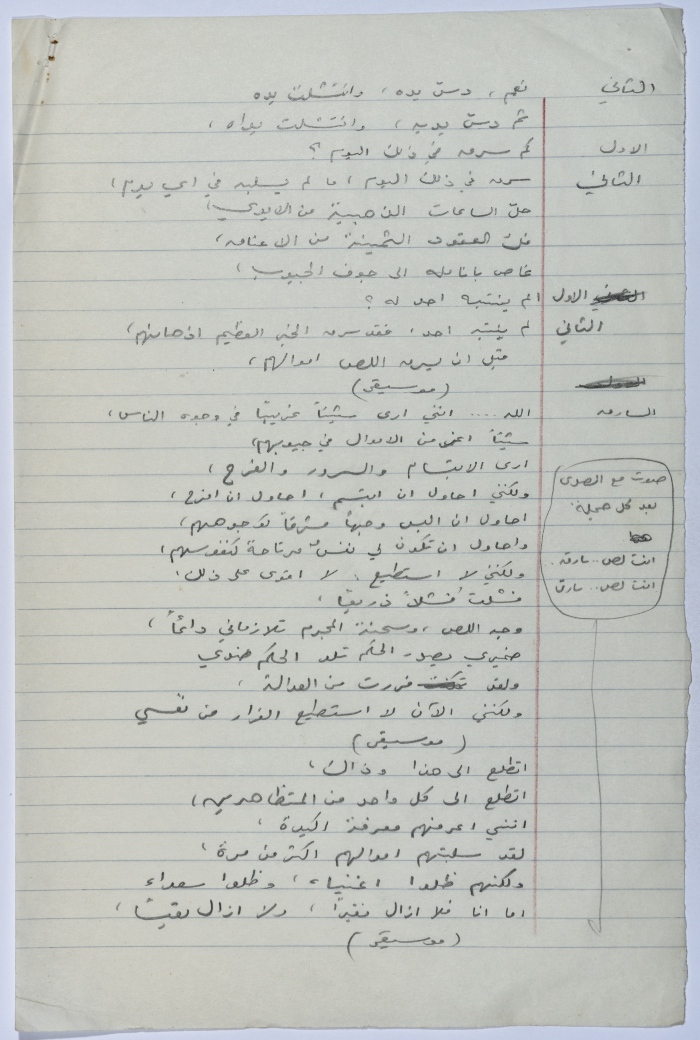 الثاني نعم، دسّ يده، وانتشلت يده
ثم دسّ يديه، وانتشلت يداه،
الاول كم سرق في ذلك اليوم؟
الثاني سرق في ذلك اليوم، ما لم يسلبه في اي يوم،
حلّ الساعات الذهبية من الايدي،
فكّ العقود الثمينة من الاعناق،
غاص بانامله الى جوف الجيوب،
الاول الم ينتبه احد له؟
الثاني لم ينتبه احد، فقد سرق الخطيب العظيم اذهانهم،
قبل ان يسرق اللص اموالهم،
(موسيقى)
السارق الله .... انني ارى شيئاً غريباً في وجوه الناس،
شيئاً اغلى من الاموال في جيوبهم،
ارى الابتسام والسرور والفرح،
ولكنني احاول ان ابتسم، احاول ان افرح،
احاول ان البس وجهاً مشرقاً كوجوههم،
واحاول ان تكون لي نفسٌ مرتاحة كنفوسهم،
ولكنني لا استطيع، لا اقوى على ذلك،
فشلت فشلاً ذريعاً،
وجه اللص، وسحنة المجرم تلازماني دائماً،
ضميري يصدر الحكم تلو الحكم ضدي
ولقد فررت من العدالة،
ولكنني الآن لا استطيع الفرار من نفسي
(موسيقى)
اتطلع الى هذا وذاك،
اتطلع الى كل واحد من المتظاهرين،
انني اعرفهم معرفة اكيدة،
لقد سلبتهم اموالهم اكثر من مرة،
ولكنهم ظلوا اغنياء، وظلوا سعداء
اما انا فلا ازال فقيراً، ولا ازال تعيساً،
(موسيقى)
صوت مع الصدى
بعد كل جملة:
انت لص.. سارق.
انت لص.. سارق